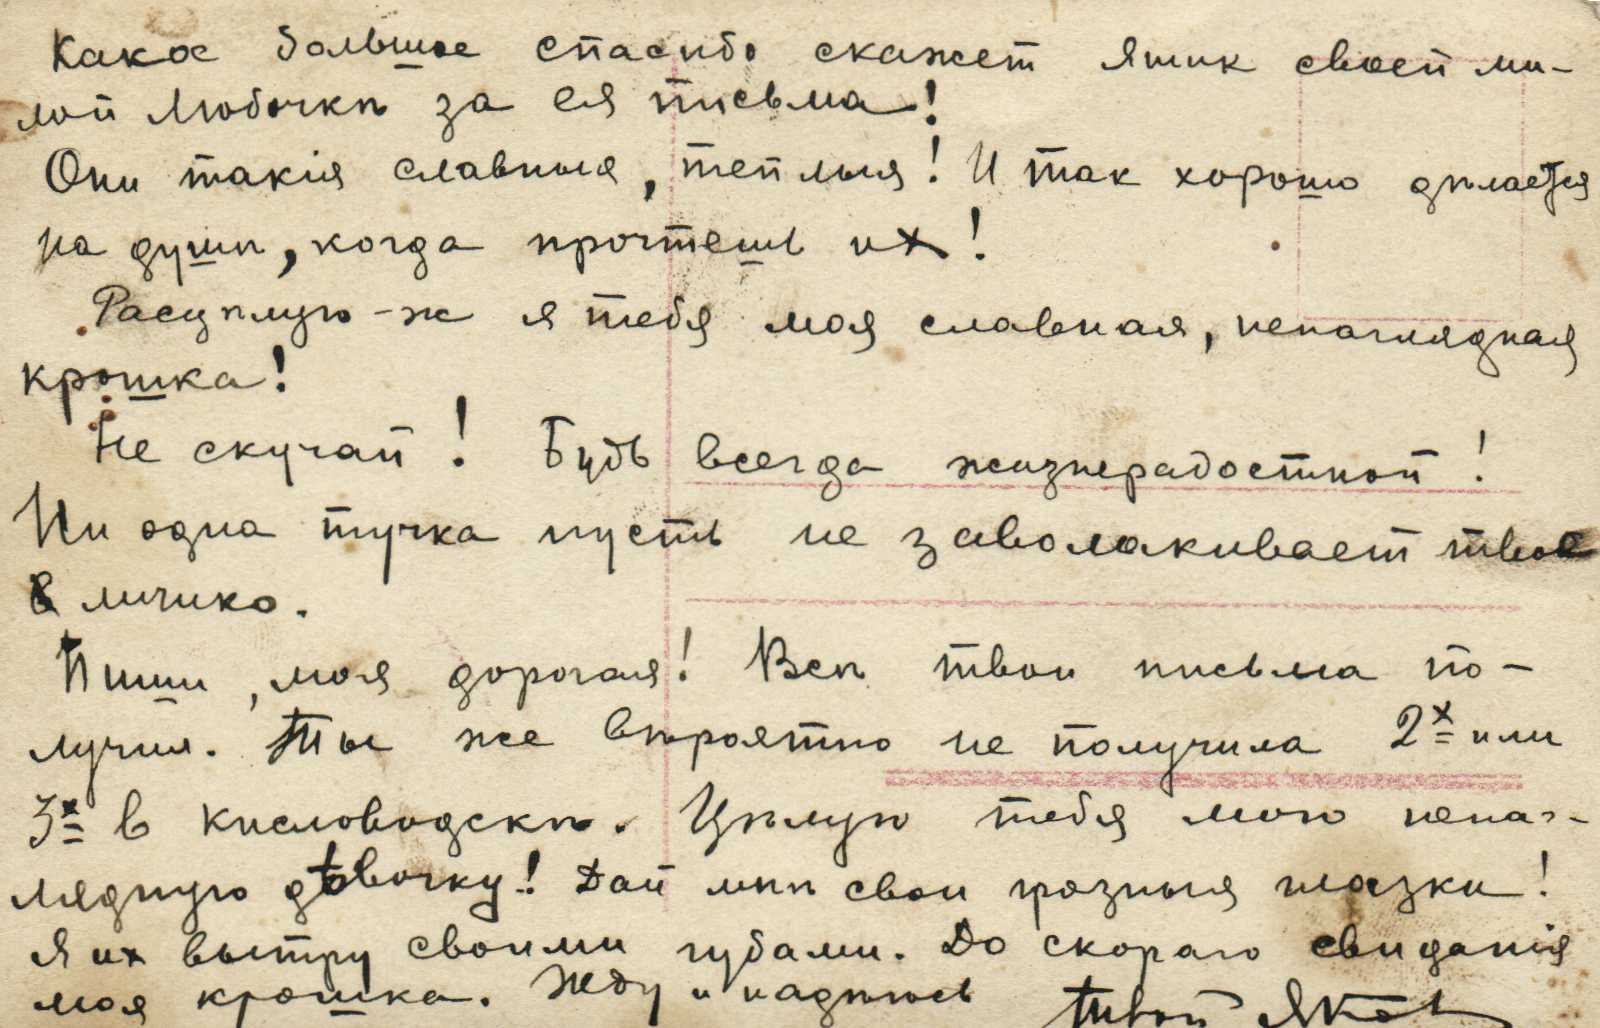 Какое большое спасибо скажет Яшик своей ми-
лой Любочкѣ за ея письма!
Они такія славныя, теплыя! И так хорошо дѣлается
на душѣ, когда прочтешь их!
Расцѣлую-ж я тебя моя славная, ненаглядная
крошка!
Не скучай! Будь всегда жизнерадостной!
Ни одна тучка пусть не заволакивает твое
личико.
Пиши, моя дорогая! Всѣ твои письма по-
лучил. Ты же вѣроятно не получила 2х или
3х в Кисловодскѣ. Цѣлую тебя мою ненаг-
лядную дѣвочку! Дай мнѣ свои грозныя глазки!
Я их вытру своими губами. До скораго свиданія
моя крошка. Жду и надѣюсь Твой Яков